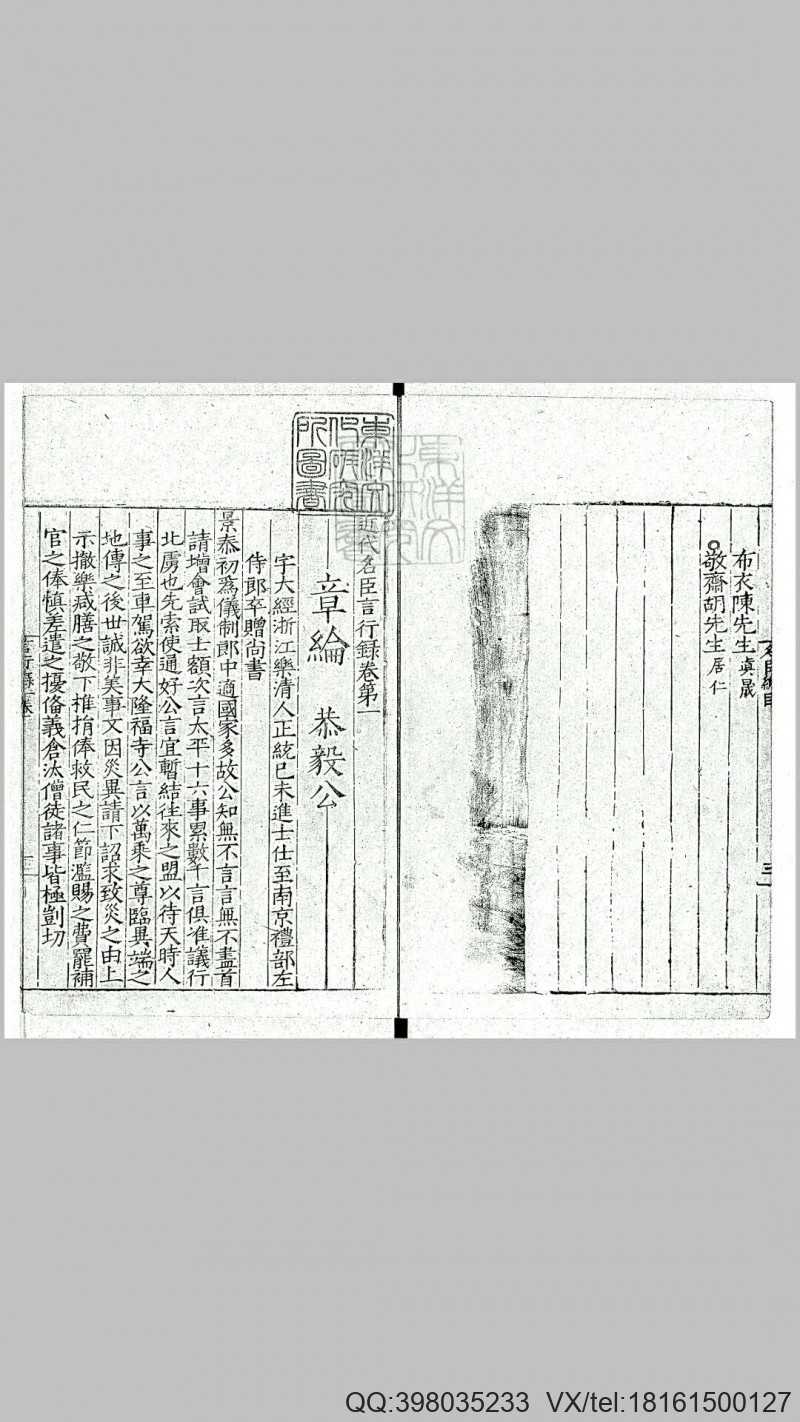 布衣陳先生真晟
敬齋胡先生居仁
三
近代名臣言行錄卷第一
章綸 恭毅公
字大經浙江樂清人正統己未進士仕至南京禮部左
侍郎卒贈尚書
景泰初為儀制郎中適國家多故公知無不言言無不盡首
請增會試取士額次言太平十六事累數千言俱准議行
北虜也先索使通好公言宜暫結往來之盟以待天時人
事之至車駕欲幸大隆福寺公言以萬乘之尊臨異端之
地傳之後世誠非美事文因災異請下詔求致災之由上
示撤樂減膳之敬下推捐俸救民之仁節濫賜之費罷補
官之俸慎差遣之擾俻義倉汰僧徒諸事皆極剴切
東洋文化研究所圖書
QQ:398035233 VX/tel:18161500127